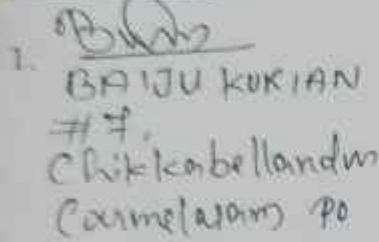 1.
BAIJU KURIAN
#7,
Chikkabellandur
Carmelaram PO